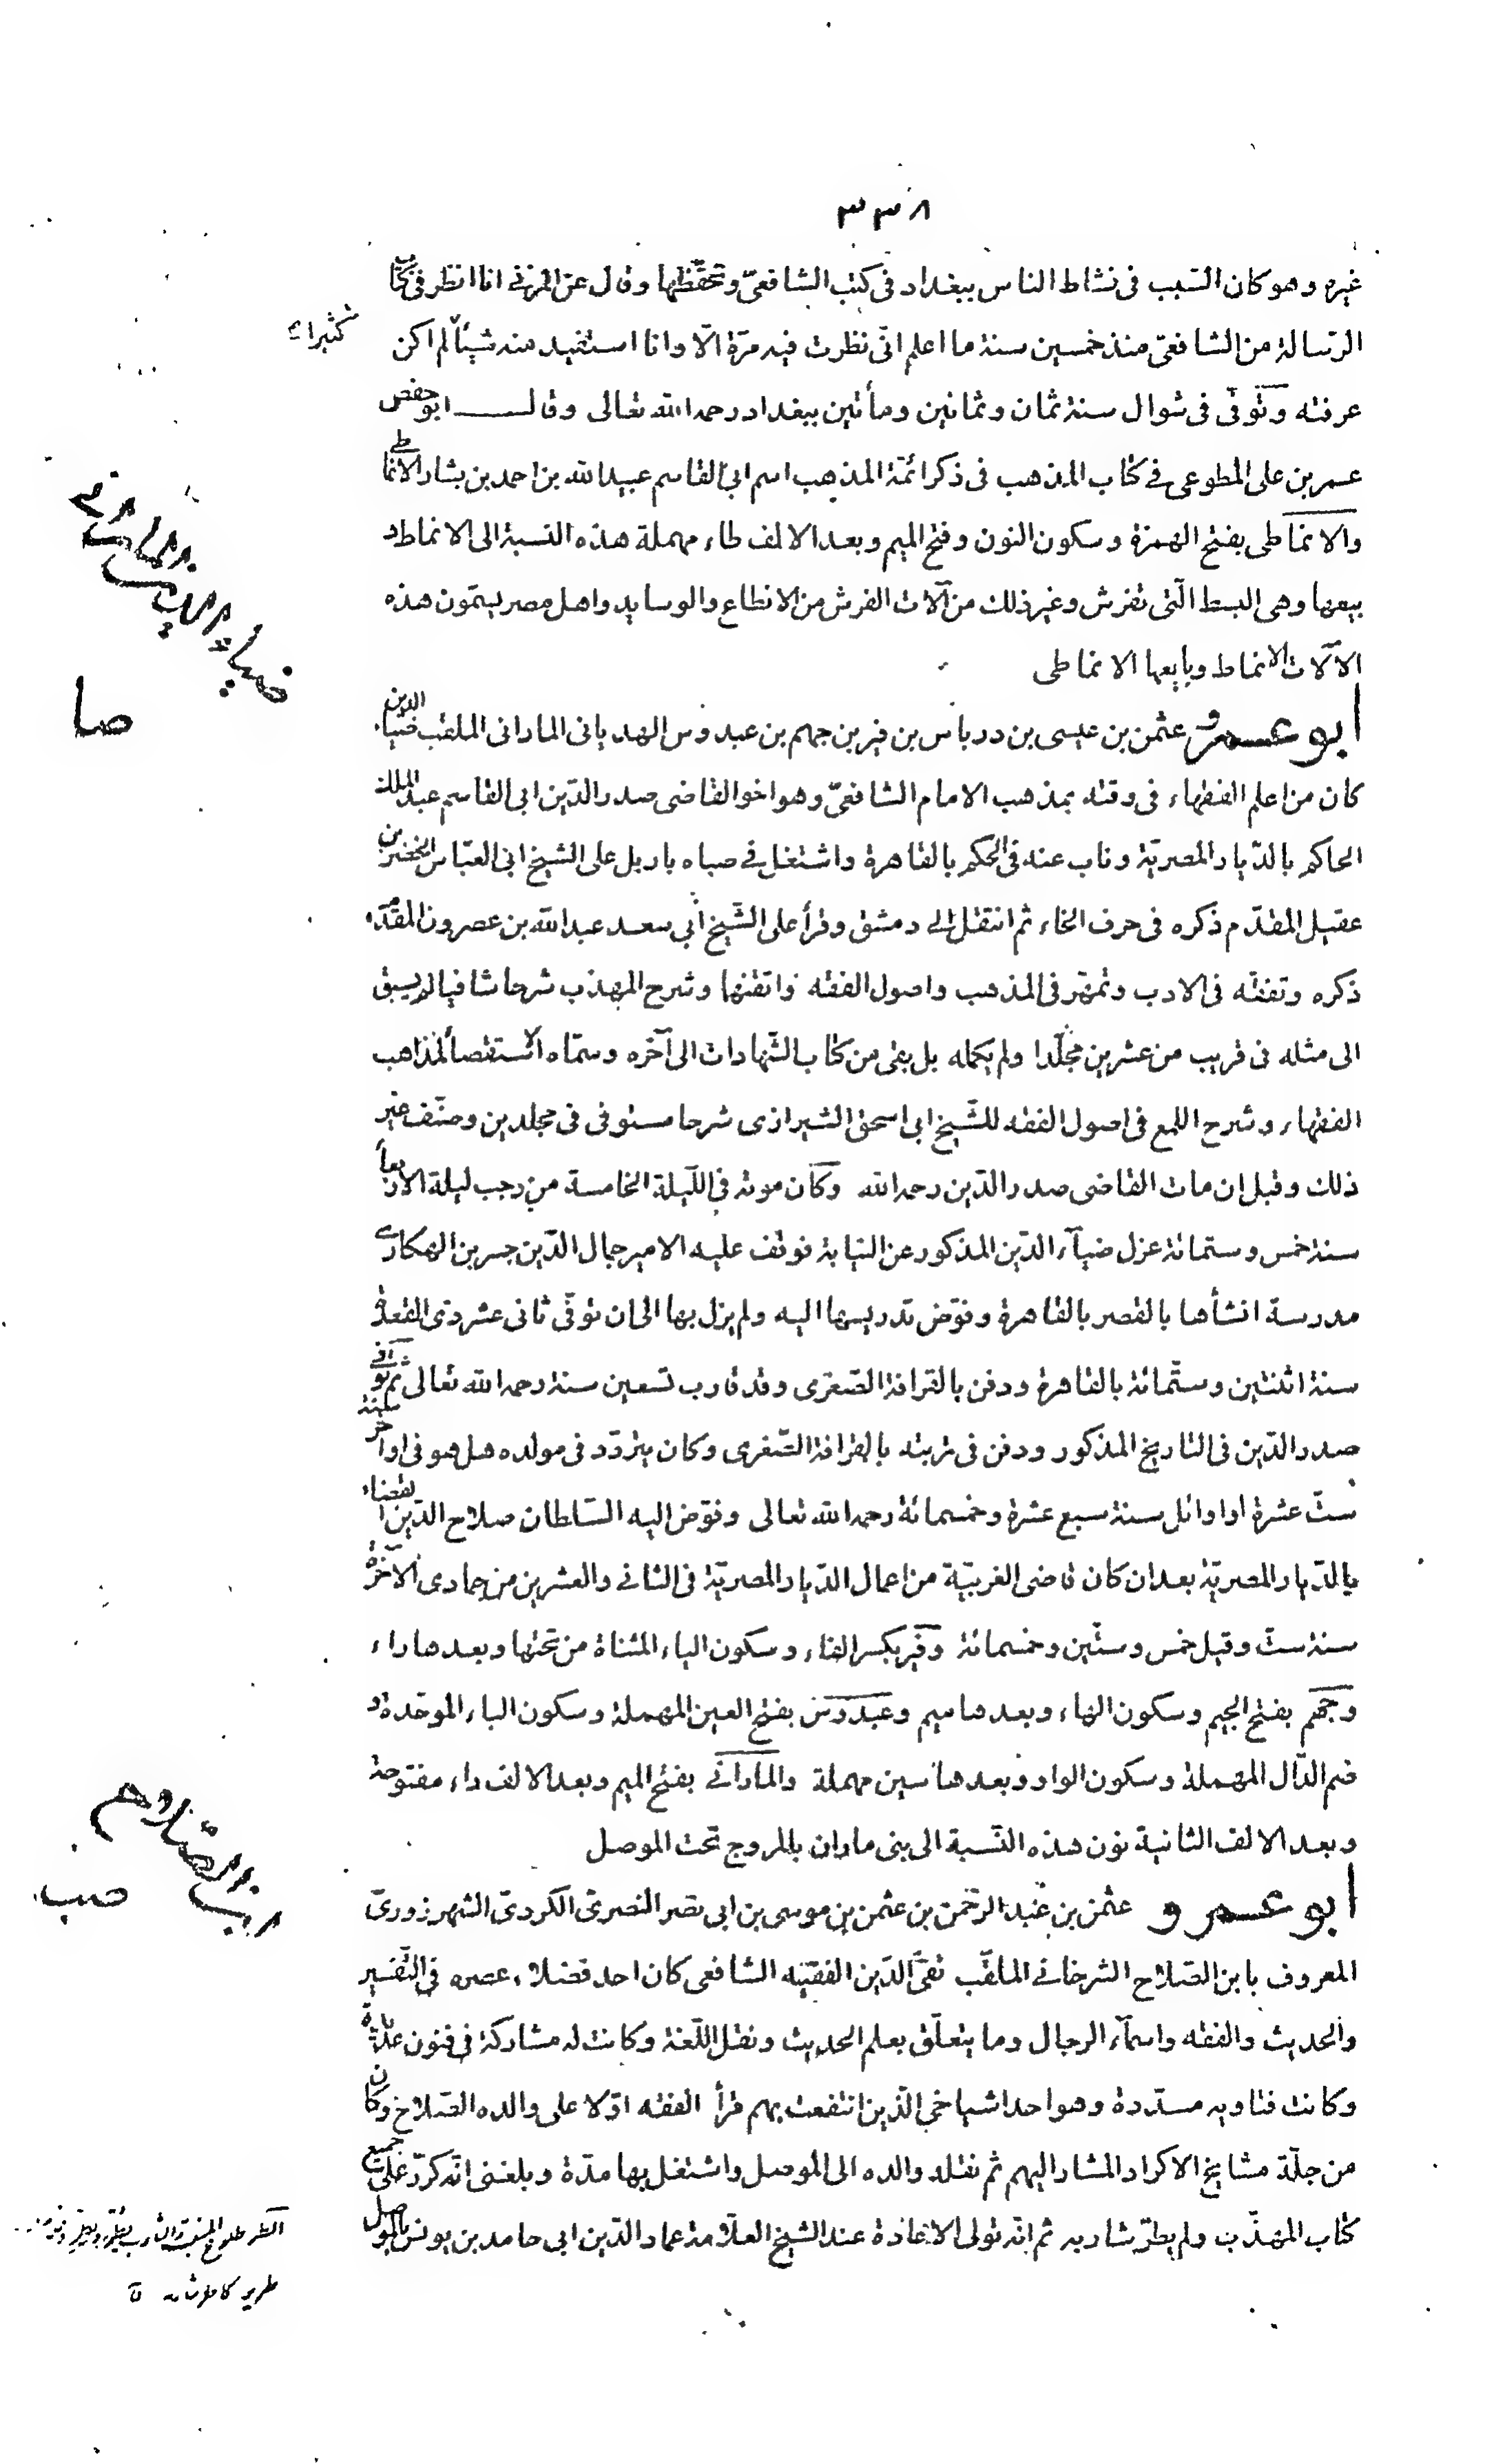 ٣٣٨
غيره وهو كان السّبب فى نشاط الناس ببغداد فى كتب الشافعىّ وتحفّظها وقال عن المزنى انا انظر فى كتاب
الرّسالة من الشافعىّ منذ خمسين سنة ما اعلم انّى نظرت فيه مرّة الّا وانا استفيد منه شيئاً لم اكن
كثيرا
عرفته وتوفّى فى شوال سنة ثمان وثمانين ومأتين ببغداد رحمه الله تعالى وقال ابو حفص
عمر بن على المطوعى فى كتاب المذهب فى ذكر ائمّة المذهب اسم ابى القاسم عبيد الله بن احمد بن بشار الانماطى
والانماطى بفتح الهمزة وسكون النون وفتح الميم وبعد الالف طاء مهملة هذه النسبة الى الانماط و
بيعها وهى البسط الّتى تفرش وغير ذلك من آلات الفرش من الانطاع والوسايد واهل مصر يسمّون هذه
الآلات الانماط وبايعها الانماطى
أبو عمرو عثمن بن عيسى بن درباس بن فير بن جهم بن عبدوس الهدبانى المارانى الملقب ضياء الدين
كان من اعلم الفقهاء فى وقته بمذهب الامام الشافعىّ وهو اخو القاضى صدر الدّين ابى القاسم عبد الملك
الحاكم بالدّيار المصريّة وناب عنه فى الحكم بالقاهرة واشتغل فى صباه باربل على الشيخ ابى العبّاس الخضر بن
عقيل المقدّم ذكره فى حرف الخاء ثم انتقل الى دمشق وقرأ على الشّيخ أبى سعد عبد الله بن عصرون المقدّم
ذكره وتفقّه فى الادب وتمهّر فى المذهب واصول الفقه واتقنها وشرح المهذب شرحا شافيا لم يسبق
الى مثله فى قريب من عشرين مجلّدا ولم يكمله بل بقى من كتاب الشّهادات الى آخره وسمّاه الاستقصا لمذاهب
الفقهاء وشرح اللمع فى اصول الفقه للشّيخ ابى اسحق الشيرازى شرحا مستوفى فى مجلدين وصنّف غير
ذلك وقبل ان مات القاضى صدر الدّين رحمه الله وكان موته فى اللّيلة الخامسة من رجب ليلة الاربعا
سنة خمس وستمائة عزل ضيآء الدّين المذكور عن النيابة فوقف عليه الامير جمال الدّين جسرين الهكارى
مدرسة انشأها بالقصر بالقاهرة وفوّض تدريسها اليه ولم يزل بها الى ان توفّى ثانى عشر ذى القعدة
سنة اثنتين وستّمائة بالقاهرة ودفن بالقرافة الصّغرى وقد قارب تسعين سنة رحمه الله تعالى ثم توفى
صدر الدّين فى التاريخ المذكور ودفن فى تربته بالقرافة الصّغرى وكان يتردّد فى مولده هل هو فى اواخر سنة
ستّ عشرة او اوائل سنة سبع عشرة وخمسمائة رحمه الله تعالى وفوّض اليه السّلطان صلاح الدّين القضاء
بالدّيار المصريّة بعد ان كان قاضى الغربيّة من اعمال الدّيار المصريّة فى الثانى والعشرين من جمادى الآخرة
سنة ستّ وقيل خمس وستّين وخمسمائة وفير بكسر الفاء وسكون الياء المثناة من تحتها وبعدها راء
وجهم بفتح الجيم وسكون الهاء وبعدها ميم وعبدوس بفتح العين المهملة وسكون الباء الموحّدة و
ضم الدّال المهملة وسكون الواو وبعدها سين مهملة والمارانى بفتح الميم وبعد الالف راء مفتوحة
وبعد الالف الثانية نون هذه النّسبة الى بنى ماران بالمروج تحت الموصل
أبو عمرو عثمن بن عبد الرّحمن بن عثمن بن موسى بن ابى نصر النصرىّ الكردىّ الشهرزورىّ
المعروف بابن الصّلاح الشرخانى الملقّب تقىّ الدّين الفقيه الشافعى كان احد فضلاء عصره فى التّفسير
والحديث والفقه واسمآء الرجال وما يتعلّق بعلم الحديث ونقل اللّغة وكانت له مشاركة فى فنون عديدة
وكانت فتاويه مسدّدة وهو احد اشياخى الّذين انتفعت بهم قرأ الفقه اوّلا على والده الصّلاح وكان
من جلّة مشايخ الاكراد المشار اليهم ثم نقله والده الى الموصل واشتغل بها مدّة وبلغنى انّه كرّر على جميع
كتاب المهذّب ولم يطرّ شاربه ثم انّه تولى الاعادة عند الشيخ العلّامة عماد الدّين ابى حامد بن يونس بالموصل
ضياء الدين المارانى
صا
ابن الصّلاح
صب